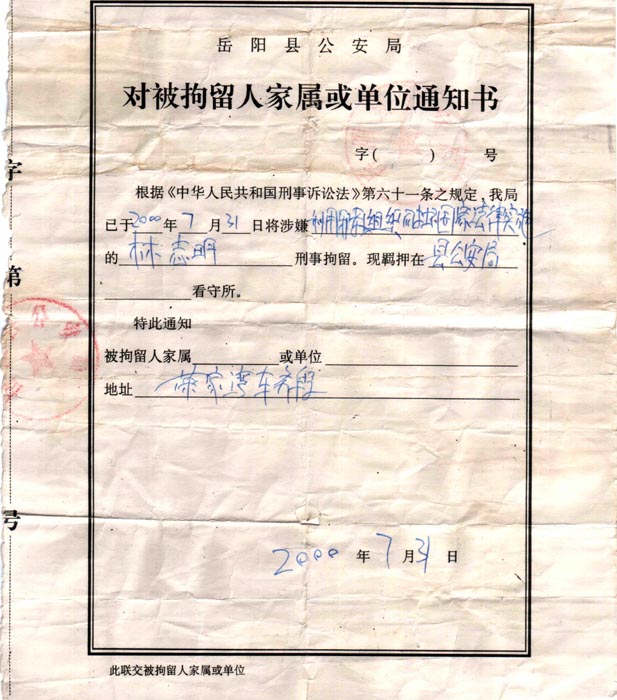 岳阳县公安局
对被拘留人家属或单位通知书
字( ) 号
根据《中华人民共和国刑事诉讼法》第六十一条之规定,我局
已于2000年7月31日将涉嫌利用邪教组织 国家法律实施
的 林志明 刑事拘留。现羁押在 县公安局
看守所。
特此通知
被拘留人家属 或单位
地址
2000年7月31日
此联交被拘留人家属或单位
字
第
号